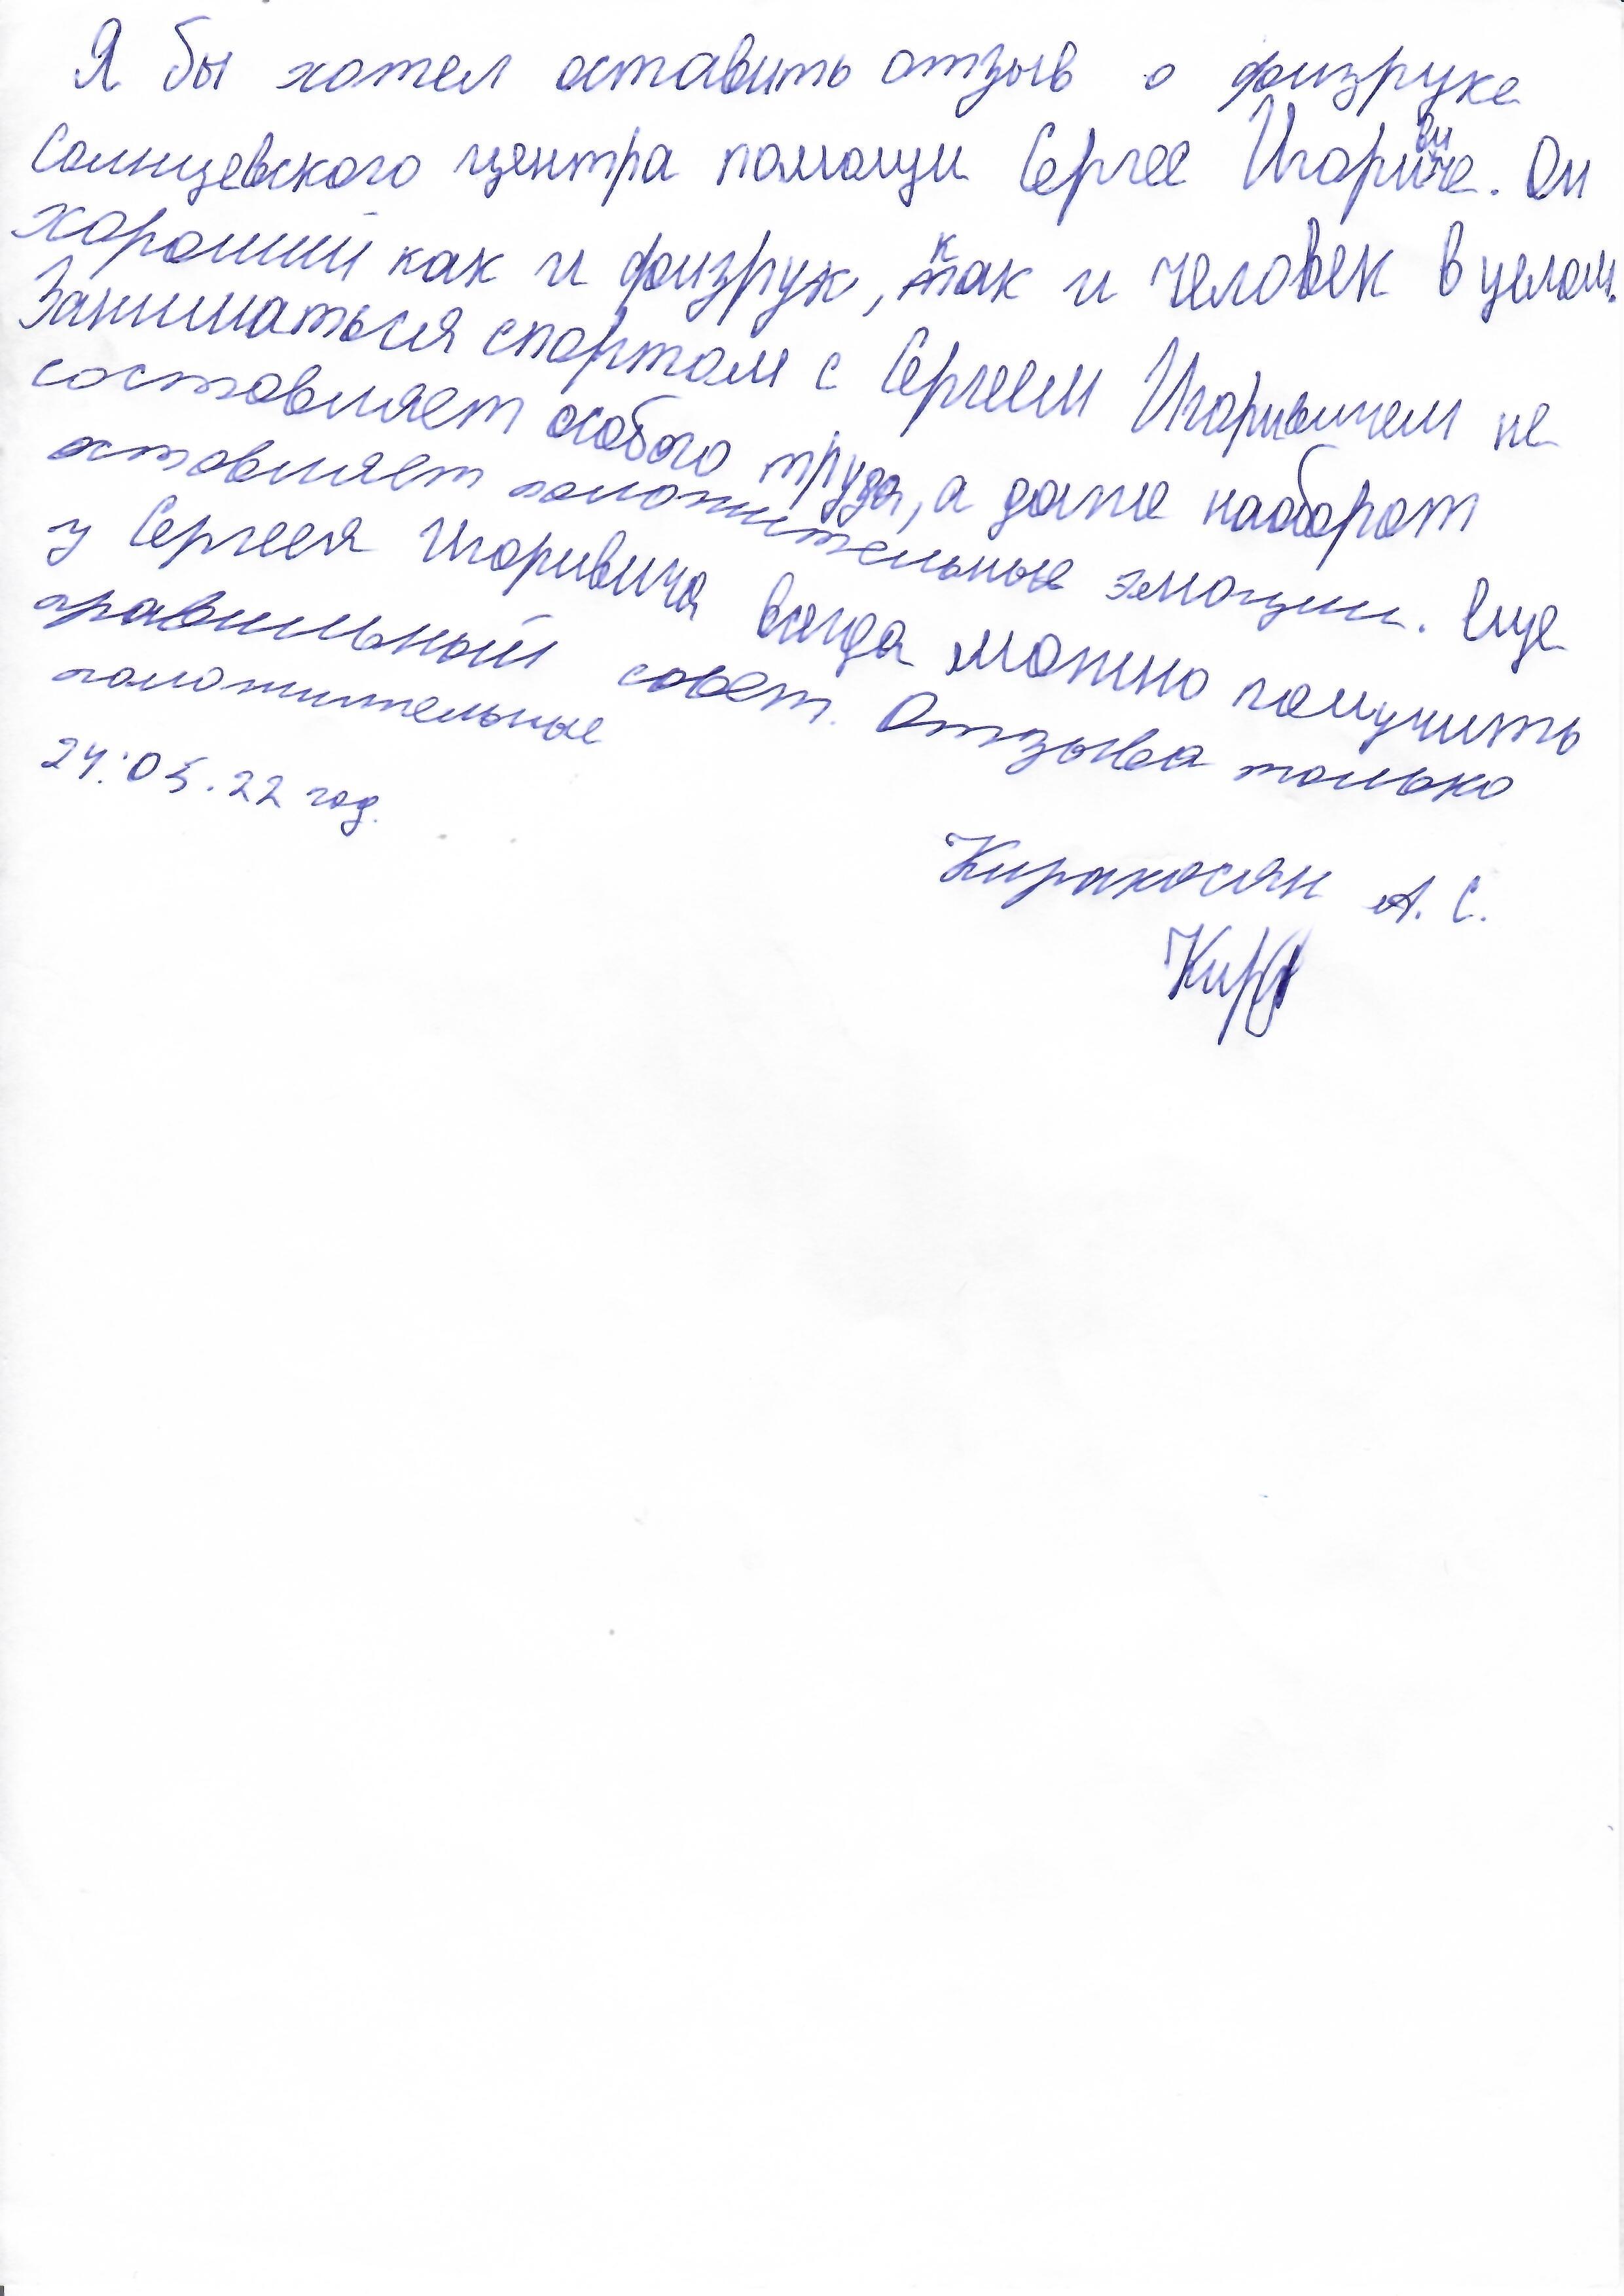 Я бы хотел оставить отзыв о физруке
Солнцевского центра помощи Сергее Игоривиче. Он
хороший как и физрук, так и человек в целом.
Заниматься спортом с Сергеем Игоривичем не
состовляет особого труда, а даже наоборот
остовляет положительные эмоции. Еще
у Сергея Игоривича всегда можно получить
правильный совет. Отзыва только
положительные
24.05.22 год.
Киракосян А. С.
Кир